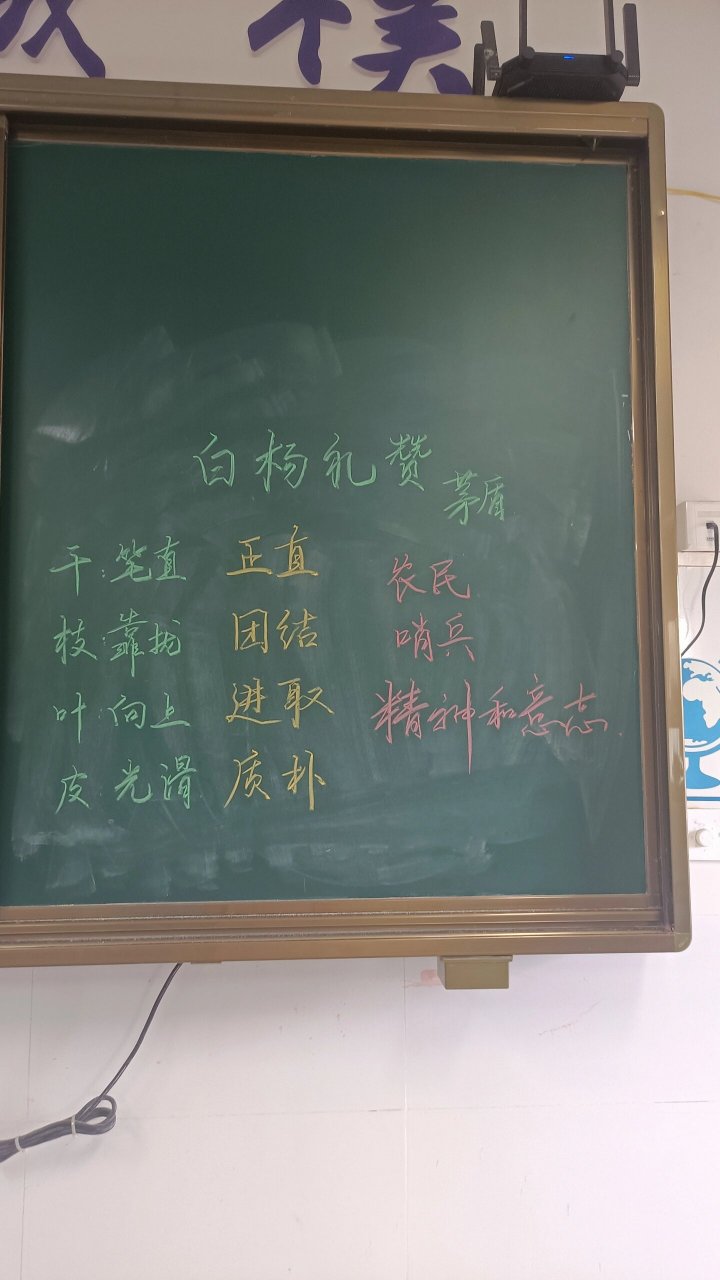 朴
白杨礼赞
茅盾
干:笔直 正直 农民
枝:靠拢 团结 哨兵
叶:向上 进取 精神和意志.
皮:光滑 质朴